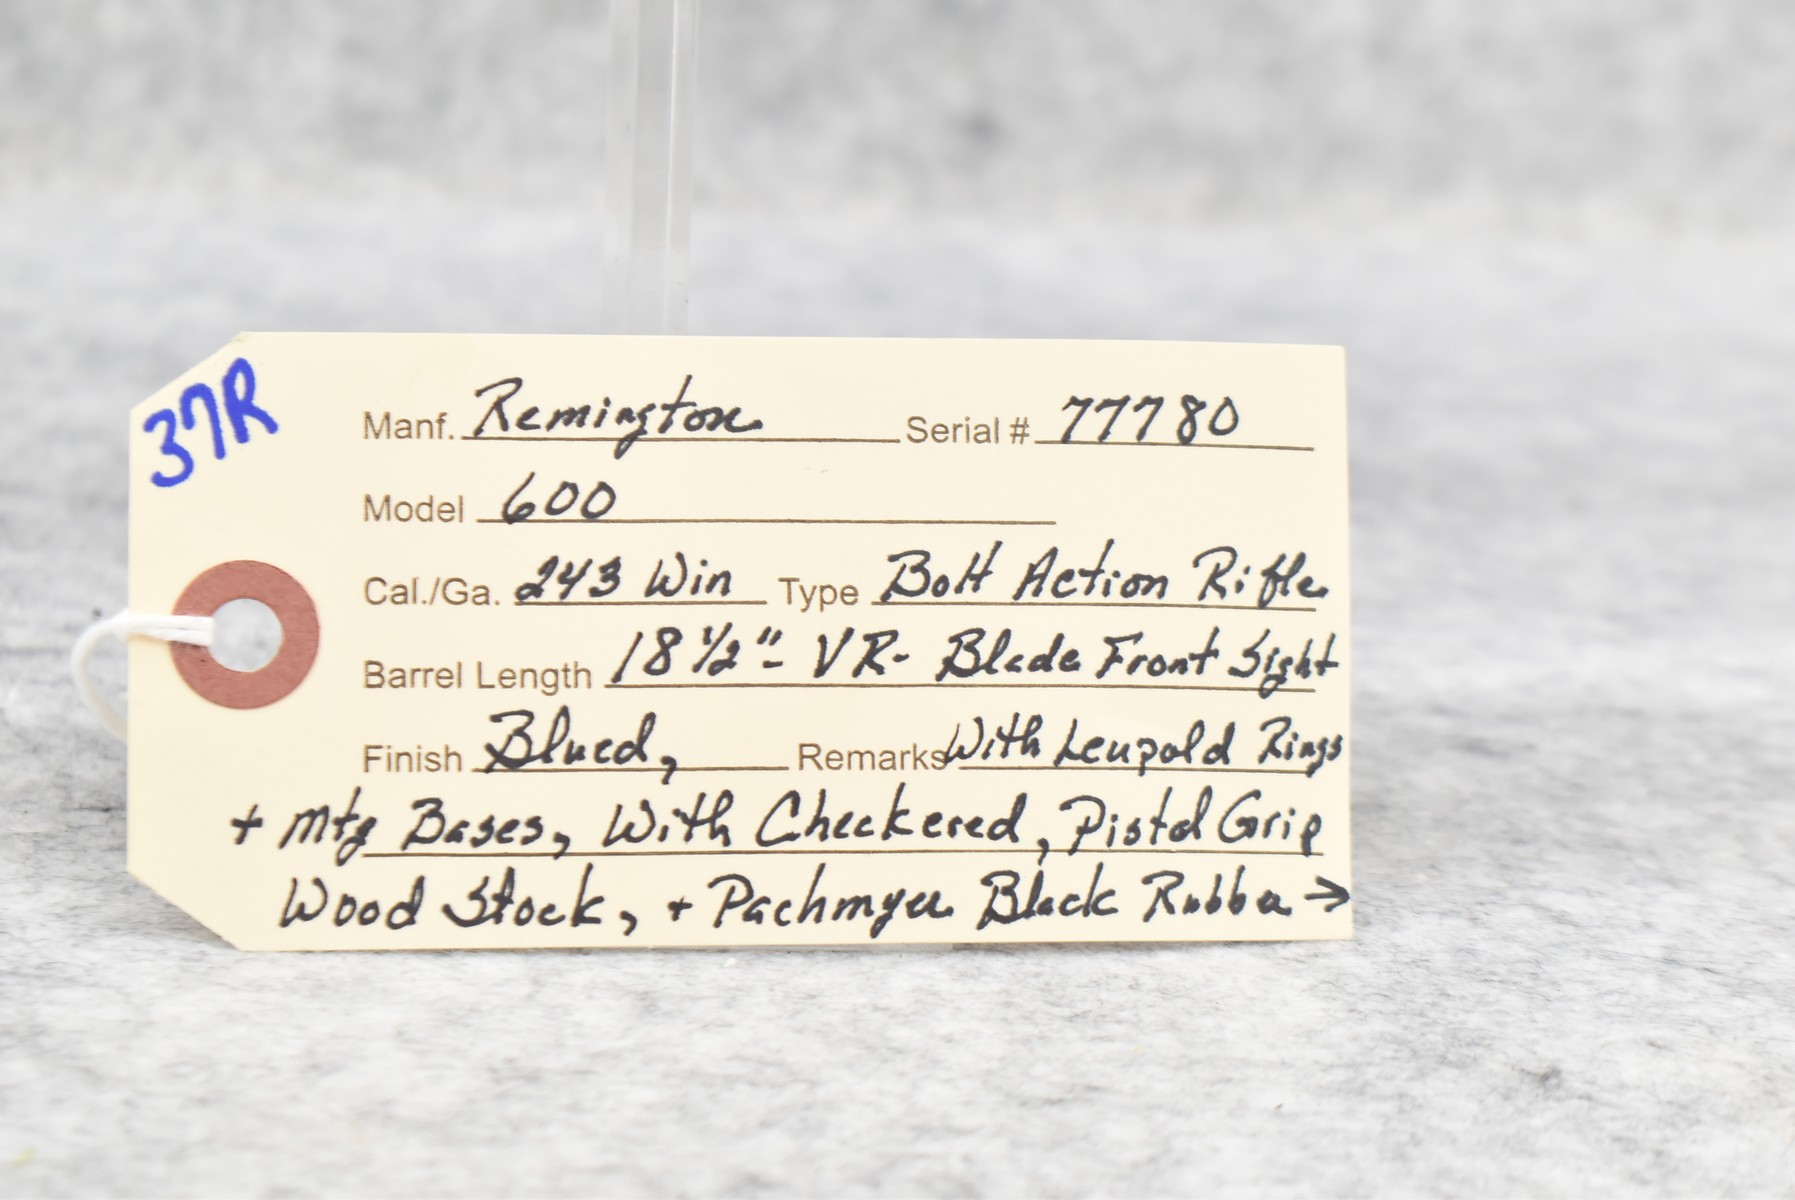 37R
Manf. Remington Serial # 77780
Model 600
Cal./Ga. 243 Win Type Bolt Action Rifle
Barrel Length 18 1/2" - VR - Blade Front Sight
Finish Blued, Remarks With Leupold Rings
+ Mtg Bases, With Checkered, Pistol Grip
Wood Stock, + Pachmyer Black Rubber →